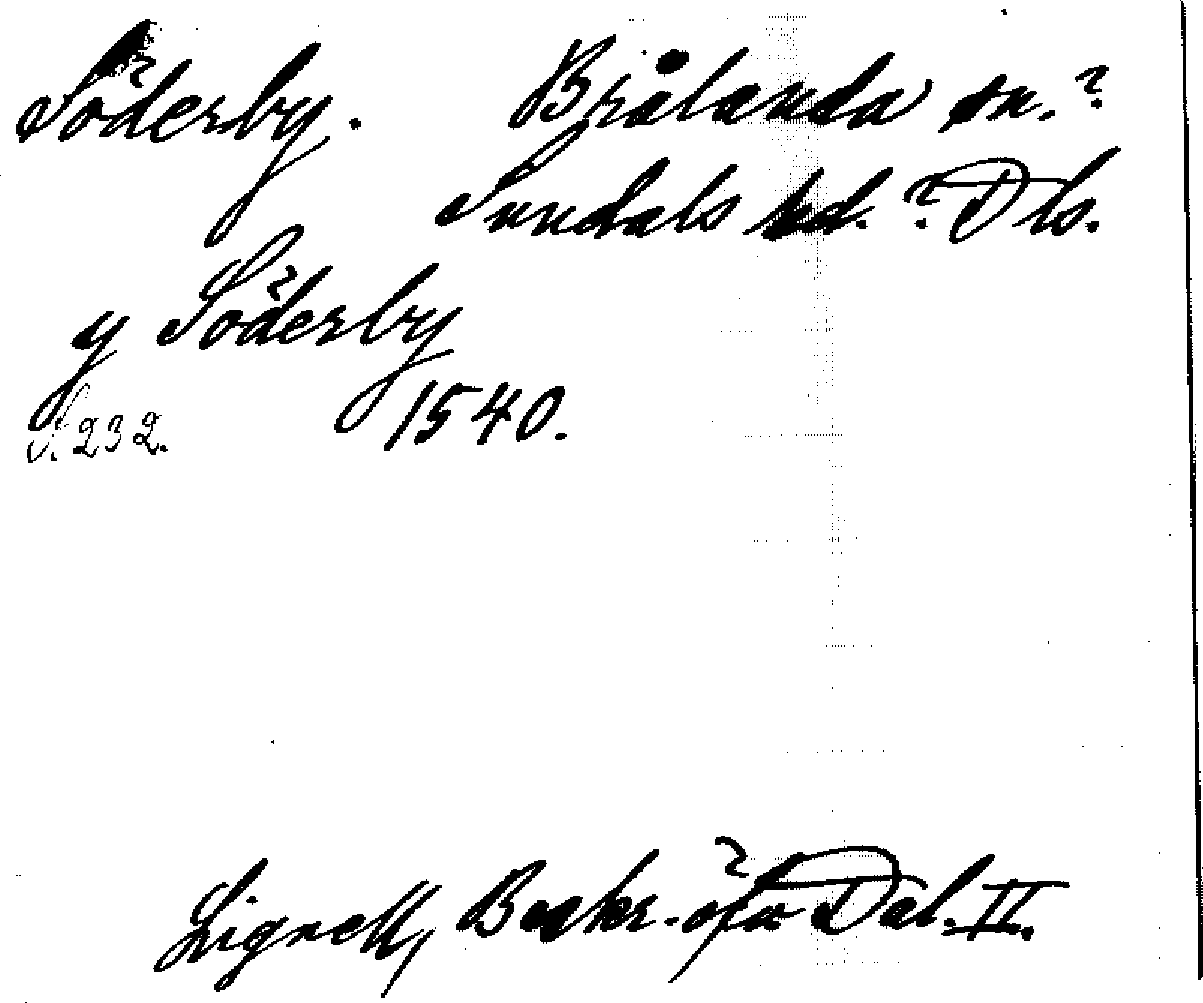 Söderby. Brålanda sn.?
Sundals hd.? Dls.
y Söderby
S. 232. 1540.
Lignell, Beskr. öfv Dal. II.